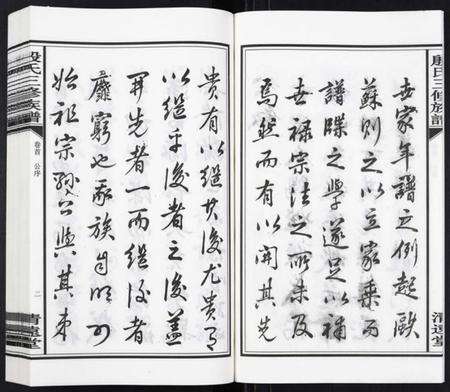 殷氏三修族譜
清遠堂
世家年譜之例起歐
蘇則之以立家乘而
譜牒之學遂足以補
世祿宗法之所未及
焉然而有以開其先
貴有以繼其後尤貴有
以繼乎後者之後蓋
開先者一而繼後者
靡窮也我族自明
始祖宗孫公與其弟
殷氏三修族譜
卷首 公序
二
清遠堂